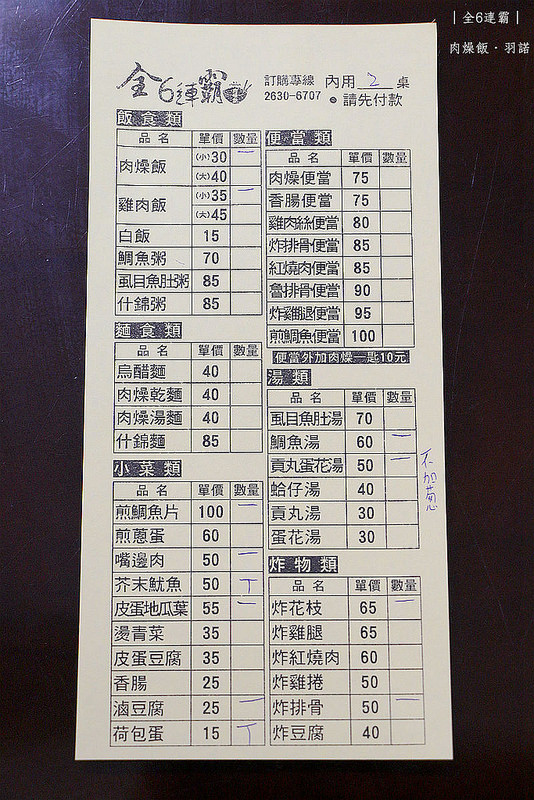 | 全6連霸 |
肉燥飯・羽諾
全6連霸
訂購專線 內用 2 桌
2630-6707 ●請先付款
飯食類
品名 單價 數量
肉燥飯 (小)30 一
(大)40
雞肉飯 (小)35 一
(大)45
白飯 15
鯛魚粥 70
虱目魚肚粥 85
什錦粥 85
麵食類
品名 單價 數量
烏醋麵 40
肉燥乾麵 40
肉燥湯麵 40
什錦麵 85
小菜類
品名 單價 數量
煎鯛魚片 100 一
煎蔥蛋 60
嘴邊肉 50 一
芥末魷魚 50 丅
皮蛋地瓜葉 55 一
燙青菜 35
皮蛋豆腐 35
香腸 25
滷豆腐 25 一
荷包蛋 15 丅
便當類
品名 單價 數量
肉燥便當 75
香腸便當 75
雞肉絲便當 80
炸排骨便當 85
紅燒肉便當 85
魯排骨便當 90
炸雞腿便當 95
煎鯛魚便當 100
便當外加肉燥一匙10元
湯類
品名 單價 數量
虱目魚肚湯 70
鯛魚湯 60 一
貢丸蛋花湯 50 一
不加蔥
蛤仔湯 40
貢丸湯 30
蛋花湯 30
炸物類
品名 單價 數量
炸花枝 65 一
炸雞腿 65
炸紅燒肉 60
炸雞捲 50
炸排骨 50 一
炸豆腐 40